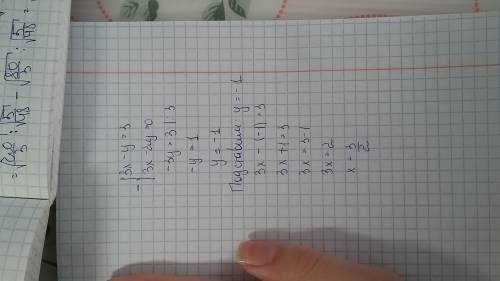 - { 3x - y = 3
3x - 2y = 0
-3y = 3 | 3
-y = 1
y = -1
Подставим: y = -1
3x - (-1) = 3
3x + 1 = 3
3x = 3 - 1
3x = 2
x = 3/2